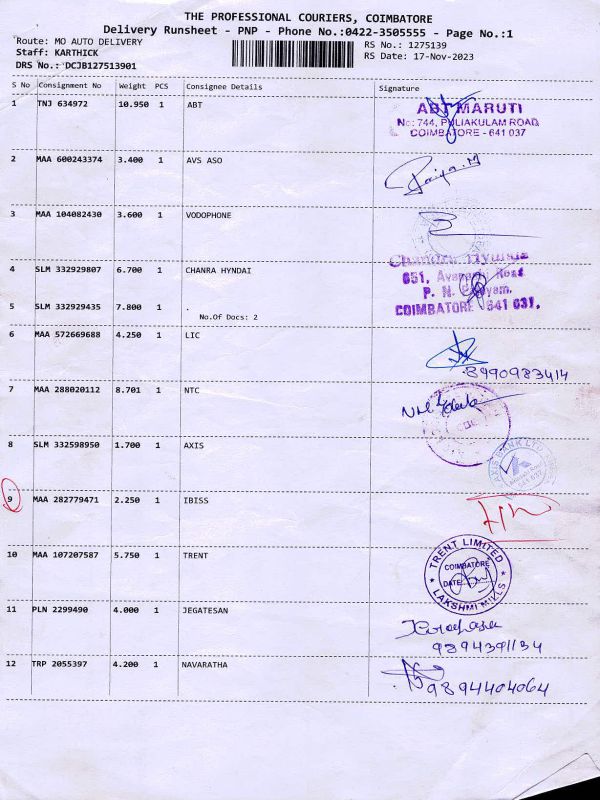 THE PROFESSIONAL COURIERS, COIMBATORE
Delivery Runsheet - PNP - Phone No.:0422-3505555 - Page No.:1
Route: MO AUTO DELIVERY
Staff: KARTHICK
DRS No.: DCJB127513901
RS No.: 1275139
RS Date: 17-Nov-2023
S No Consignment No Weight PCS Consignee Details Signature
1 TNJ 634972 10.950 1 ABT
ABT MARUTI
No: 744, PULIAKULAM ROAD
COIMBATORE - 641 037
2 MAA 600243374 3.400 1 AVS ASO
3 MAA 104082430 3.600 1 VODOPHONE
4 SLM 332929807 6.700 1 CHANRA HYNDAI
Chandra Hyundai
651, Avanashi Road
COIMBATORE 641 031.
5 SLM 332929435 7.800 1 .
No.Of Docs: 2
6 MAA 572669688 4.250 1 LIC
8990983414
7 MAA 288020112 8.701 1 NTC
8 SLM 332598950 1.700 1 AXIS
AXIS BANK LTD
9 MAA 282779471 2.250 1 IBISS
10 MAA 107207587 5.750 1 TRENT
TRENT LIMITED
COIMBATORE
DATE:
LAKSHMI MILLS
11 PLN 2299490 4.000 1 JEGATESAN
9894391134
12 TRP 2055397 4.200 1 NAVARATHA
9894404064